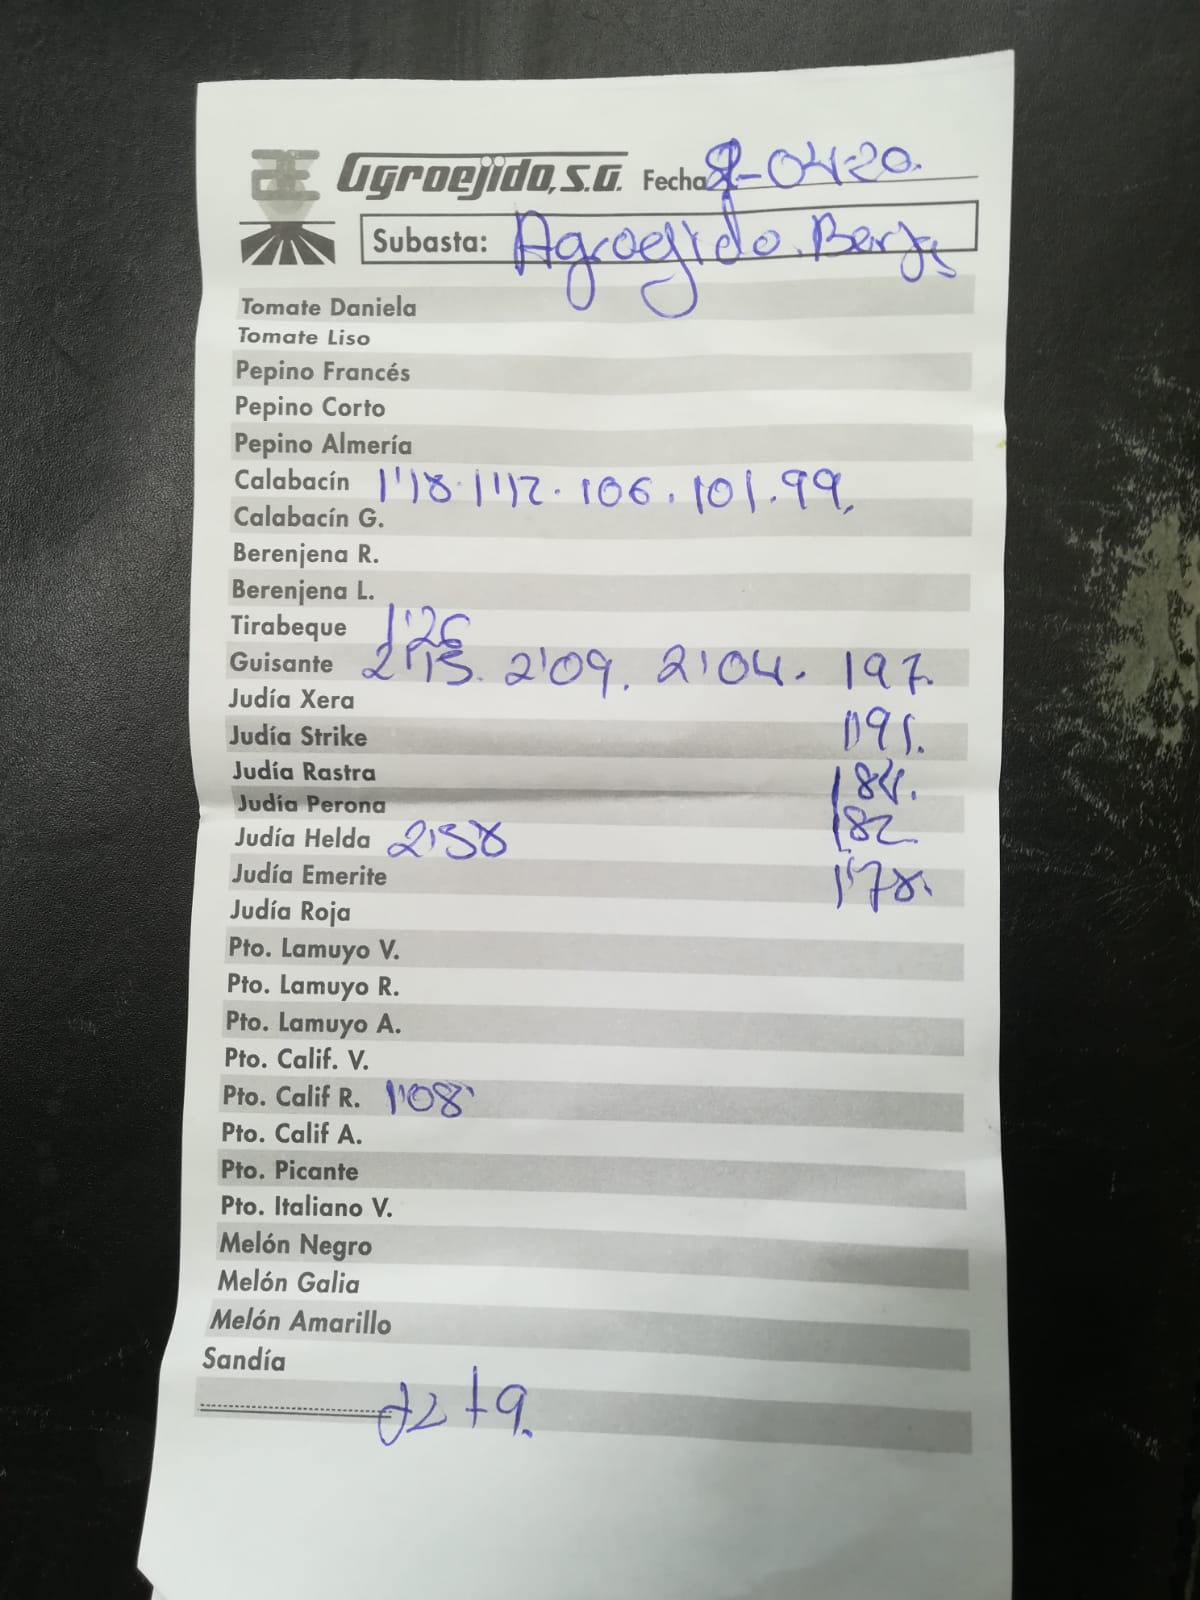 Agroejido, S.A. Fecha 8-04-20.
Subasta: Agroejido. Berja
Tomate Daniela
Tomate Liso
Pepino Francés
Pepino Corto
Pepino Almería
Calabacín 1'18. 1'12. 106. 101. 99.
Calabacín G.
Berenjena R.
Berenjena L.
Tirabeque 1'26
Guisante 2'15. 2'09. 2'04. 197.
Judía Xera
Judía Strike 191.
Judía Rastra 184.
Judía Perona 182
Judía Helda 2'38
Judía Emerite 1'78.
Judía Roja
Pto. Lamuyo V.
Pto. Lamuyo R.
Pto. Lamuyo A.
Pto. Calif. V.
Pto. Calif R. 1'08
Pto. Calif A.
Pto. Picante
Pto. Italiano V.
Melón Negro
Melón Galia
Melón Amarillo
Sandía